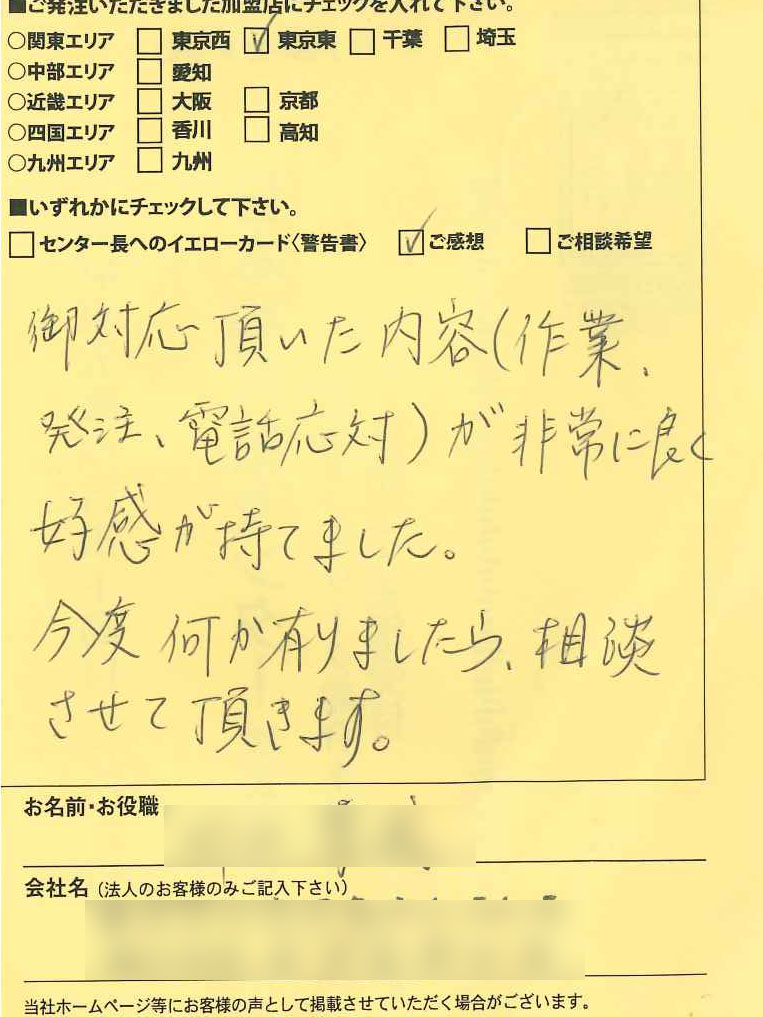 ■ご発注いただきました加盟店にチェックを入れて下さい。
○関東エリア □ 東京西 ☑ 東京東 □ 千葉 □ 埼玉
○中部エリア □ 愛知
○近畿エリア □ 大阪 □ 京都
○四国エリア □ 香川 □ 高知
○九州エリア □ 九州
■いずれかにチェックして下さい。
□センター長へのイエローカード〈警告書〉 ☑ご感想 □ご相談希望
御対応頂いた内容(作業、
発注、電話応対)が非常に良く
好感が持てました。
今度何か有りましたら、相談
させて頂きます。
お名前・お役職
会社名(法人のお客様のみご記入下さい)
当社ホームページ等にお客様の声として掲載させていただく場合がございます。